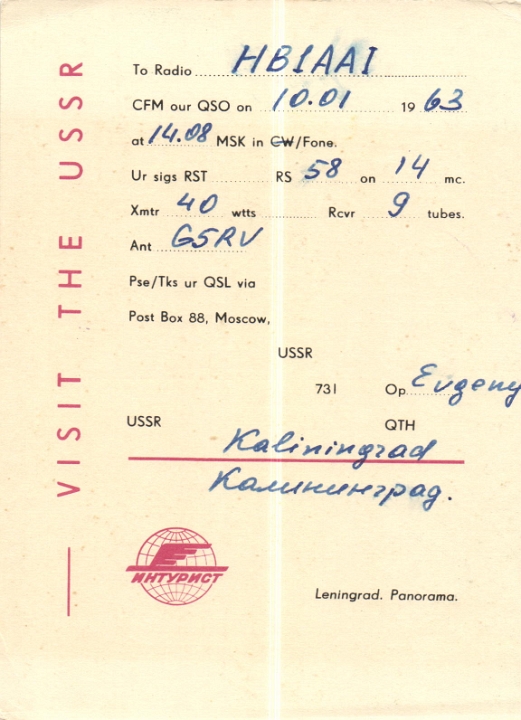 VISIT THE USSR
To Radio HB1AAI
CFM our QSO on 10.01 1963
at 14.08 MSK in CW/Fone.
Ur sigs RST RS 58 on 14 mc.
Xmtr 40 wtts Rcvr 9 tubes.
Ant G5RV
Pse/Tks ur QSL via
Post Box 88, Moscow,
USSR
731 Op Evgeny
USSR QTH
Kaliningrad
Калининград.
ИНТУРИСТ
Leningrad. Panorama.